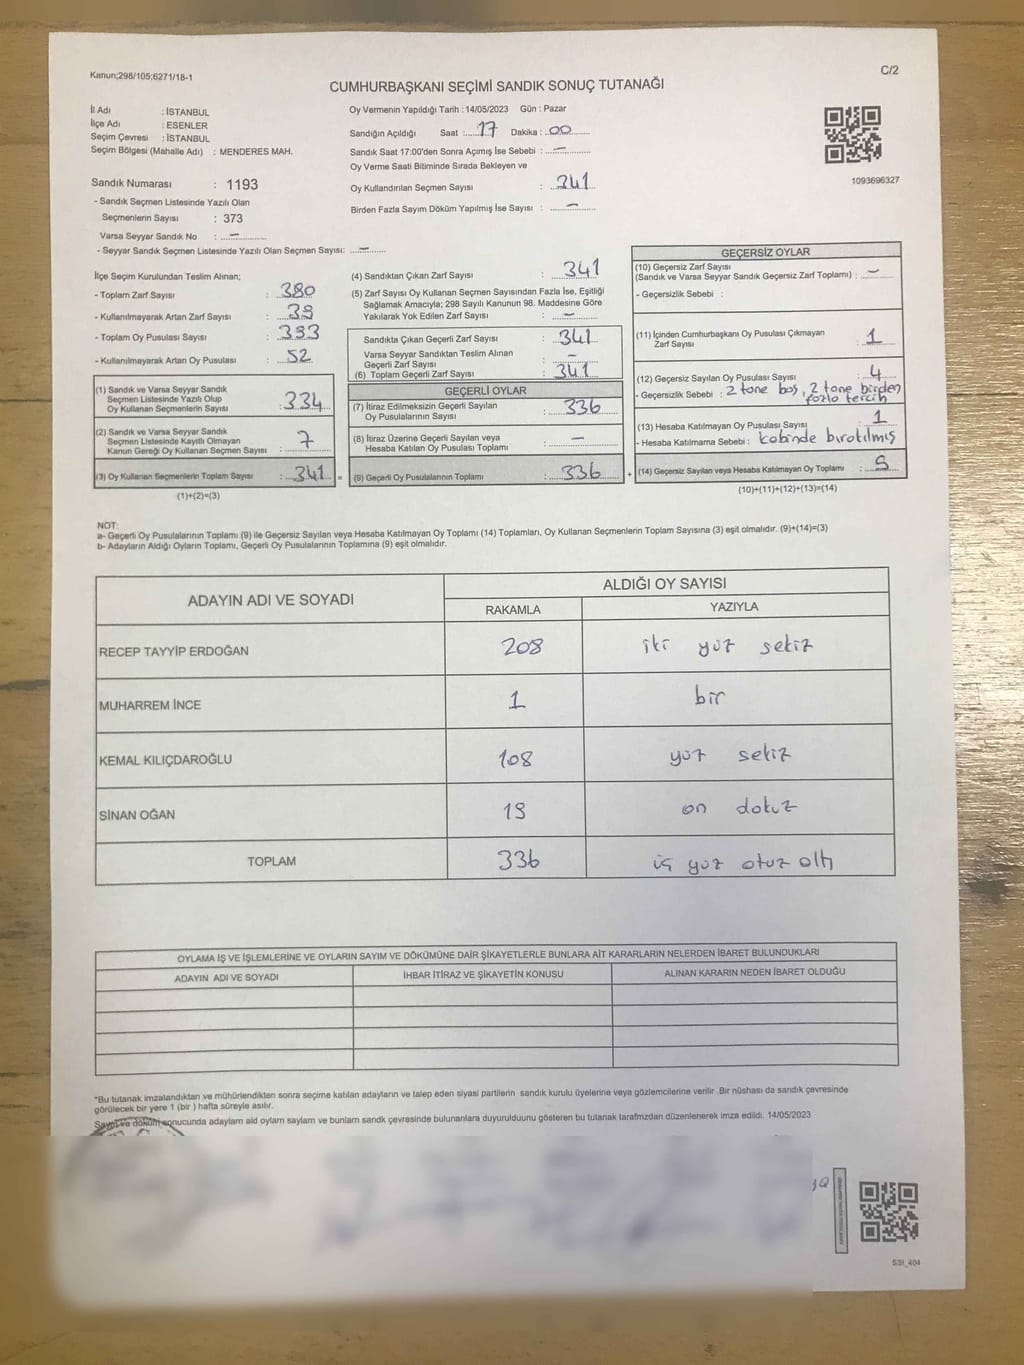 Kanun;298/105;6271/18-1
C/2
CUMHURBAŞKANI SEÇİMİ SANDIK SONUÇ TUTANAĞI
İl Adı : İSTANBUL
İlçe Adı : ESENLER
Seçim Çevresi : İSTANBUL
Seçim Bölgesi (Mahalle Adı) : MENDERES MAH.
Sandık Numarası : 1193
- Sandık Seçmen Listesinde Yazılı Olan
Seçmenlerin Sayısı : 373
Varsa Seyyar Sandık No : –
- Seyyar Sandık Seçmen Listesinde Yazılı Olan Seçmen Sayısı: –
Oy Vermenin Yapıldığı Tarih : 14/05/2023 Gün : Pazar
Sandığın Açıldığı Saat : 17 Dakika : 00
Sandık Saat 17:00'den Sonra Açımış İse Sebebi : –
Oy Verme Saati Bitiminde Sırada Bekleyen ve
Oy Kullandırılan Seçmen Sayısı : 341
Birden Fazla Sayım Döküm Yapılmış İse Sayısı : –
1093696327
İlçe Seçim Kurulundan Teslim Alınan;
- Toplam Zarf Sayısı : 380
- Kullanılmayarak Artan Zarf Sayısı : 39
- Toplam Oy Pusulası Sayısı : 393
- Kullanılmayarak Artan Oy Pusulası : 52
(1) Sandık ve Varsa Seyyar Sandık
Seçmen Listesinde Yazılı Olup
Oy Kullanan Seçmenlerin Sayısı : 334
(2) Sandık ve Varsa Seyyar Sandık
Seçmen Listesinde Kayıtlı Olmayan
Kanun Gereği Oy Kullanan Seçmen Sayısı : 7
(3) Oy Kullanan Seçmenlerin Toplam Sayısı : 341 =
(1)+(2)=(3)
(4) Sandıktan Çıkan Zarf Sayısı : 341
(5) Zarf Sayısı Oy Kullanan Seçmen Sayısından Fazla İse, Eşitliği
Sağlamak Amacıyla; 298 Sayılı Kanunun 98. Maddesine Göre
Yakılarak Yok Edilen Zarf Sayısı : –
Sandıkta Çıkan Geçerli Zarf Sayısı : 341
Varsa Seyyar Sandıktan Teslim Alınan
Geçerli Zarf Sayısı : –
(6) Toplam Geçerli Zarf Sayısı : 341
GEÇERLİ OYLAR
(7) İtiraz Edilmeksizin Geçerli Sayılan
Oy Pusulalarının Sayısı : 336
(8) İtiraz Üzerine Geçerli Sayılan veya
Hesaba Katılan Oy Pusulası Toplamı : –
(9) Geçerli Oy Pusulalarının Toplamı : 336 +
GEÇERSİZ OYLAR
(10) Geçersiz Zarf Sayısı
(Sandık ve Varsa Seyyar Sandık Geçersiz Zarf Toplamı) : –
- Geçersizlik Sebebi :
(11) İçinden Cumhurbaşkanı Oy Pusulası Çıkmayan
Zarf Sayısı : 1
(12) Geçersiz Sayılan Oy Pusulası Sayısı : 4
- Geçersizlik Sebebi : 2 tane boş, 2 tane birden
fazla tercih
(13) Hesaba Katılmayan Oy Pusulası Sayısı : 1
- Hesaba Katılmama Sebebi : kabinde bırakılmış
(14) Geçersiz Sayılan veya Hesaba Katılmayan Oy Toplamı : 5
(10)+(11)+(12)+(13)=(14)
NOT:
a- Geçerli Oy Pusulalarının Toplamı (9) ile Geçersiz Sayılan veya Hesaba Katılmayan Oy Toplamı (14) Toplamları, Oy Kullanan Seçmenlerin Toplam Sayısına (3) eşit olmalıdır. (9)+(14)=(3)
b- Adayların Aldığı Oyların Toplamı, Geçerli Oy Pusulalarının Toplamına (9) eşit olmalıdır.
ADAYIN ADI VE SOYADI
ALDIĞI OY SAYISI
RAKAMLA YAZIYLA
RECEP TAYYİP ERDOĞAN 208 iki yüz sekiz
MUHARREM İNCE 1 bir
KEMAL KILIÇDAROĞLU 108 yüz sekiz
SİNAN OĞAN 19 on dokuz
TOPLAM 336 üç yüz otuz altı
OYLAMA İŞ VE İŞLEMLERİNE VE OYLARIN SAYIM VE DÖKÜMÜNE DAİR ŞİKAYETLERLE BUNLARA AİT KARARLARIN NELERDEN İBARET BULUNDUKLARI
ADAYIN ADI VE SOYADI İHBAR İTİRAZ VE ŞİKAYETİN KONUSU ALINAN KARARIN NEDEN İBARET OLDUĞU
*Bu tutanak imzalandıktan ve mühürlendikten sonra seçime katılan adayların ve talep eden siyasi partilerin sandık kurulu üyelerine veya gözlemcilerine verilir .Bir nüshası da sandık çevresinde
görülecek bir yere 1 (bir ) hafta süreyle asılır.
Sayım ve döküm sonucunda adaylarn ald oylarn saylarn ve bunlarn sandk çevresinde bulunanlara duyurulduunu gösteren bu tutanak tarafmzdan düzenlenerek imza edildi. 14/05/2023
SSI_404